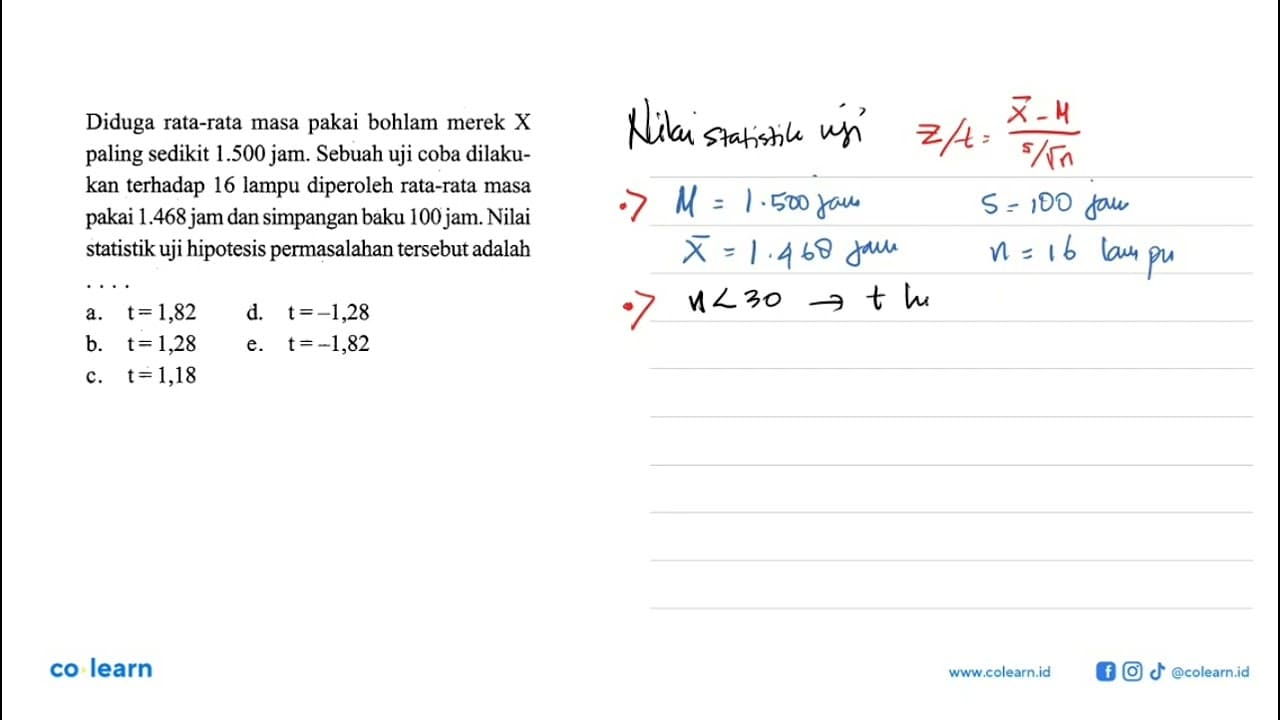 Diduga rata-rata masa pakai bohlam merek X
paling sedikit 1.500 jam. Sebuah uji coba dilaku-
kan terhadap 16 lampu diperoleh rata-rata masa
pakai 1.468 jam dan simpangan baku 100 jam. Nilai
statistik uji hipotesis permasalahan tersebut adalah
. . . .
a. t = 1,82 d. t = –1,28
b. t = 1,28 e. t = –1,82
c. t = 1,18
Nilai statistik uji z/t = x̄ - M / s/√n
•> M = 1.500 jam s = 100 jam
x̄ = 1.468 jam n = 16 lampu
•> n < 30 → t hi
co learn
www.colearn.id @colearn.id